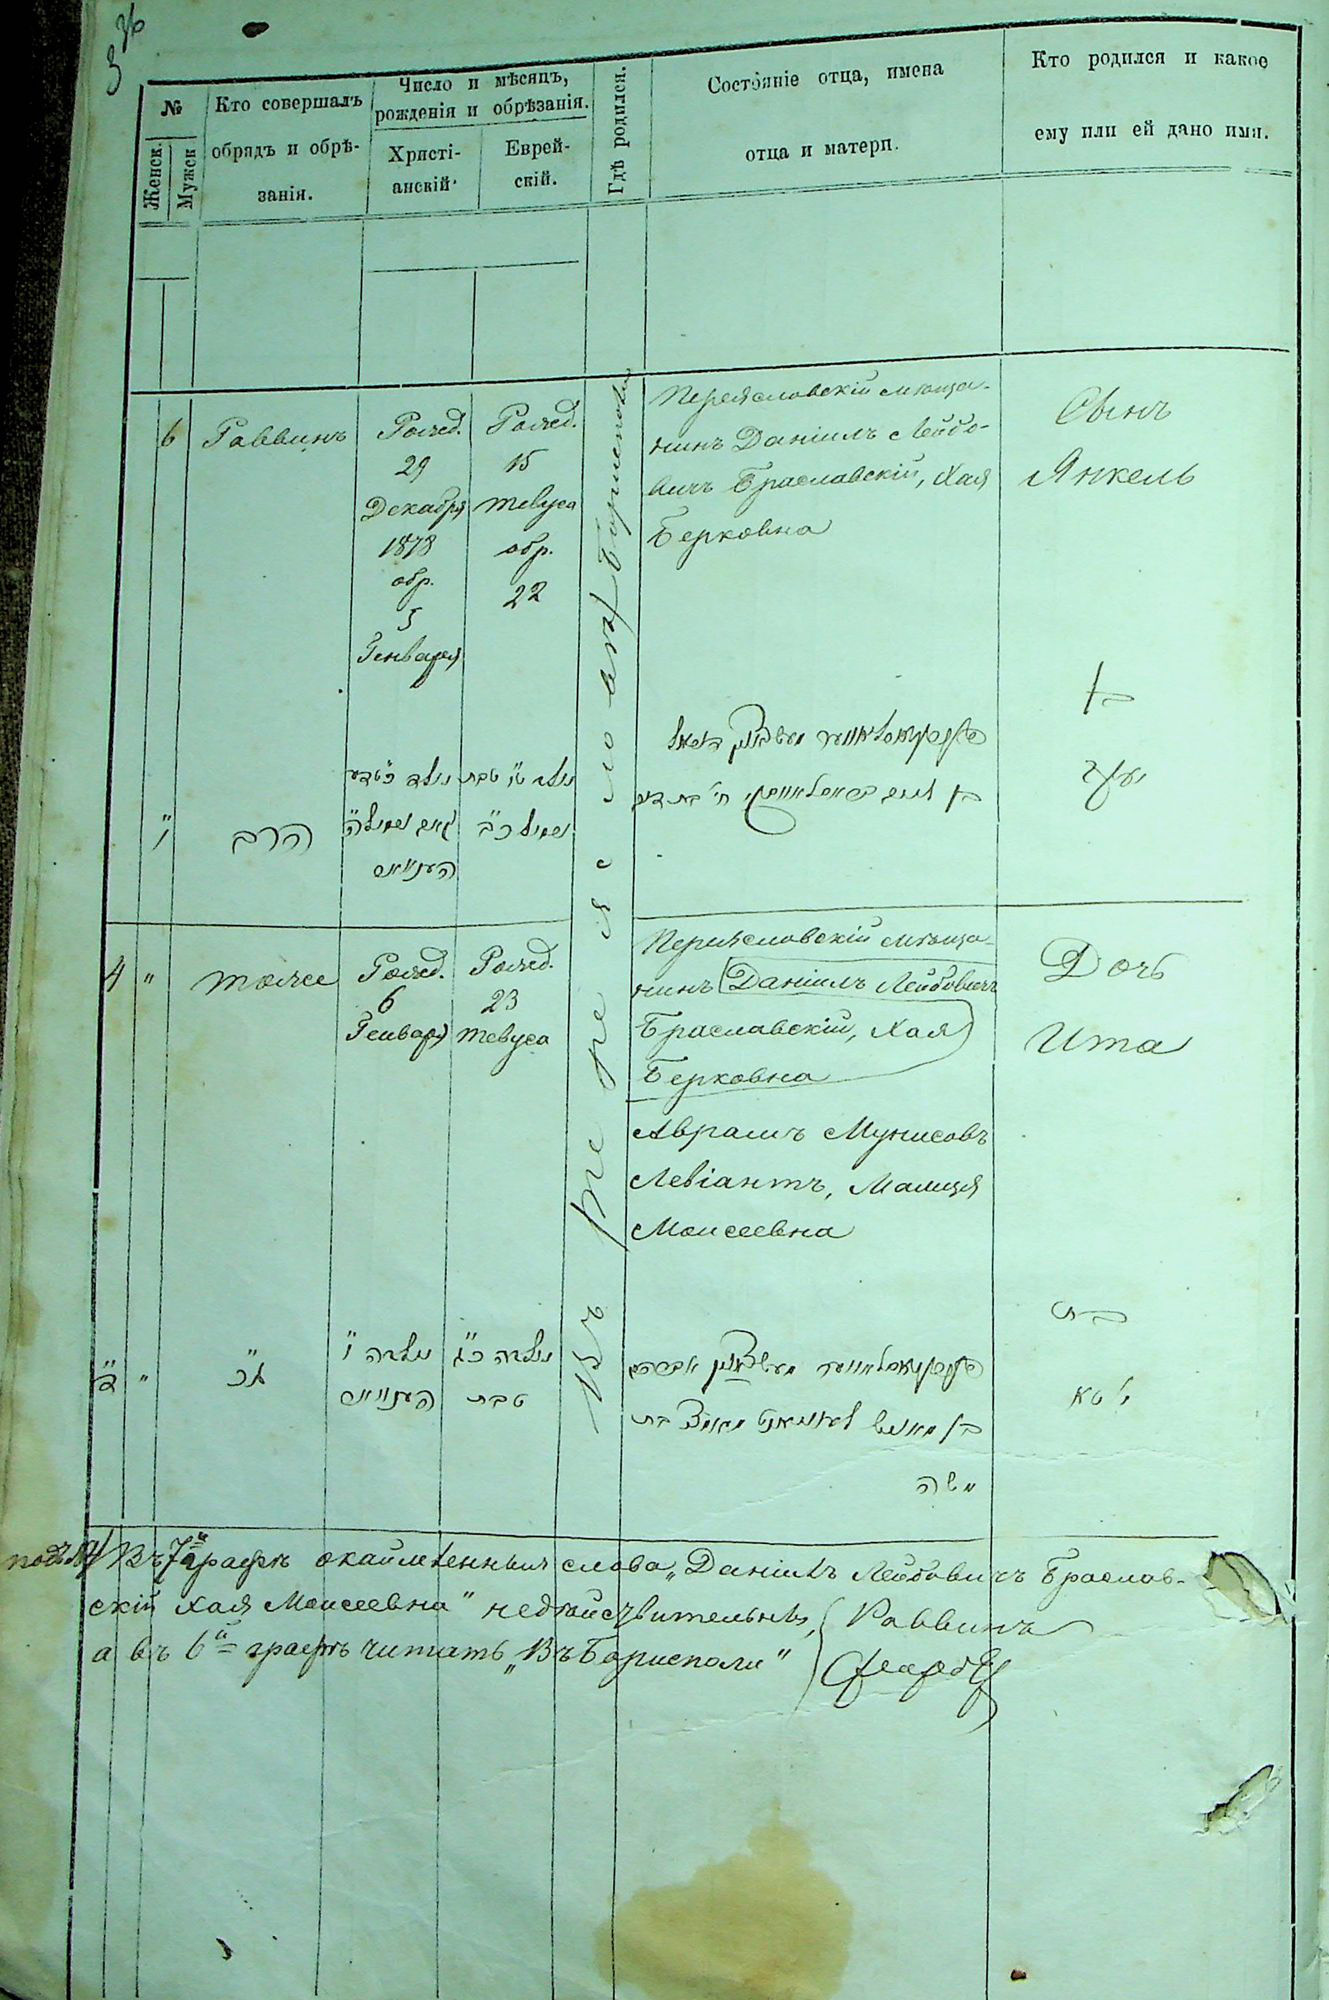 №
Женск.
Мужск
Кто совершалъ
обрядъ и обрѣ-
занія.
Число и мѣсяцъ,
рожденія и обрѣзанія.
Христі-
анскій
Еврей-
скій.
Гдѣ родился.
Состояніе отца, имена
отца и матери.
Кто родился и какое
ему или ей дано имя.
6
Раввинъ
Рожд.
29
Декабря
1878
обр.
5
Генваря
Рожд.
15
Тевуса
обр.
22
Въ Переяславлѣ Борисполи
Переяславскій мѣща-
нинъ Даніилъ Лейбо-
вичъ Браславскій, Хая
Берковна
Сынъ
Янкель
בן
הרב
נולד ט״ו טבת
נימול כ״ב
4 "
тоже
Рожд.
6
Генваря
Рожд.
23
Тевуса
Переяславскій мѣща-
нинъ Даніилъ Лейбовичъ
Браславскій, Хая
Берковна
Аврамъ Мунисовъ
Левіантъ, Малця
Моисеевна
Дочь
Ита
בת
יטא
נולדה ו׳
נולדה כ״ג
טבת
משה
Въ 7й графѣ окаймленныя слова „Даніилъ Лейбовичъ Браслав-
скій Хая Моисеевна" недѣйствительны,
а въ 6й графѣ читать „Въ Борисполи"
Раввинъ